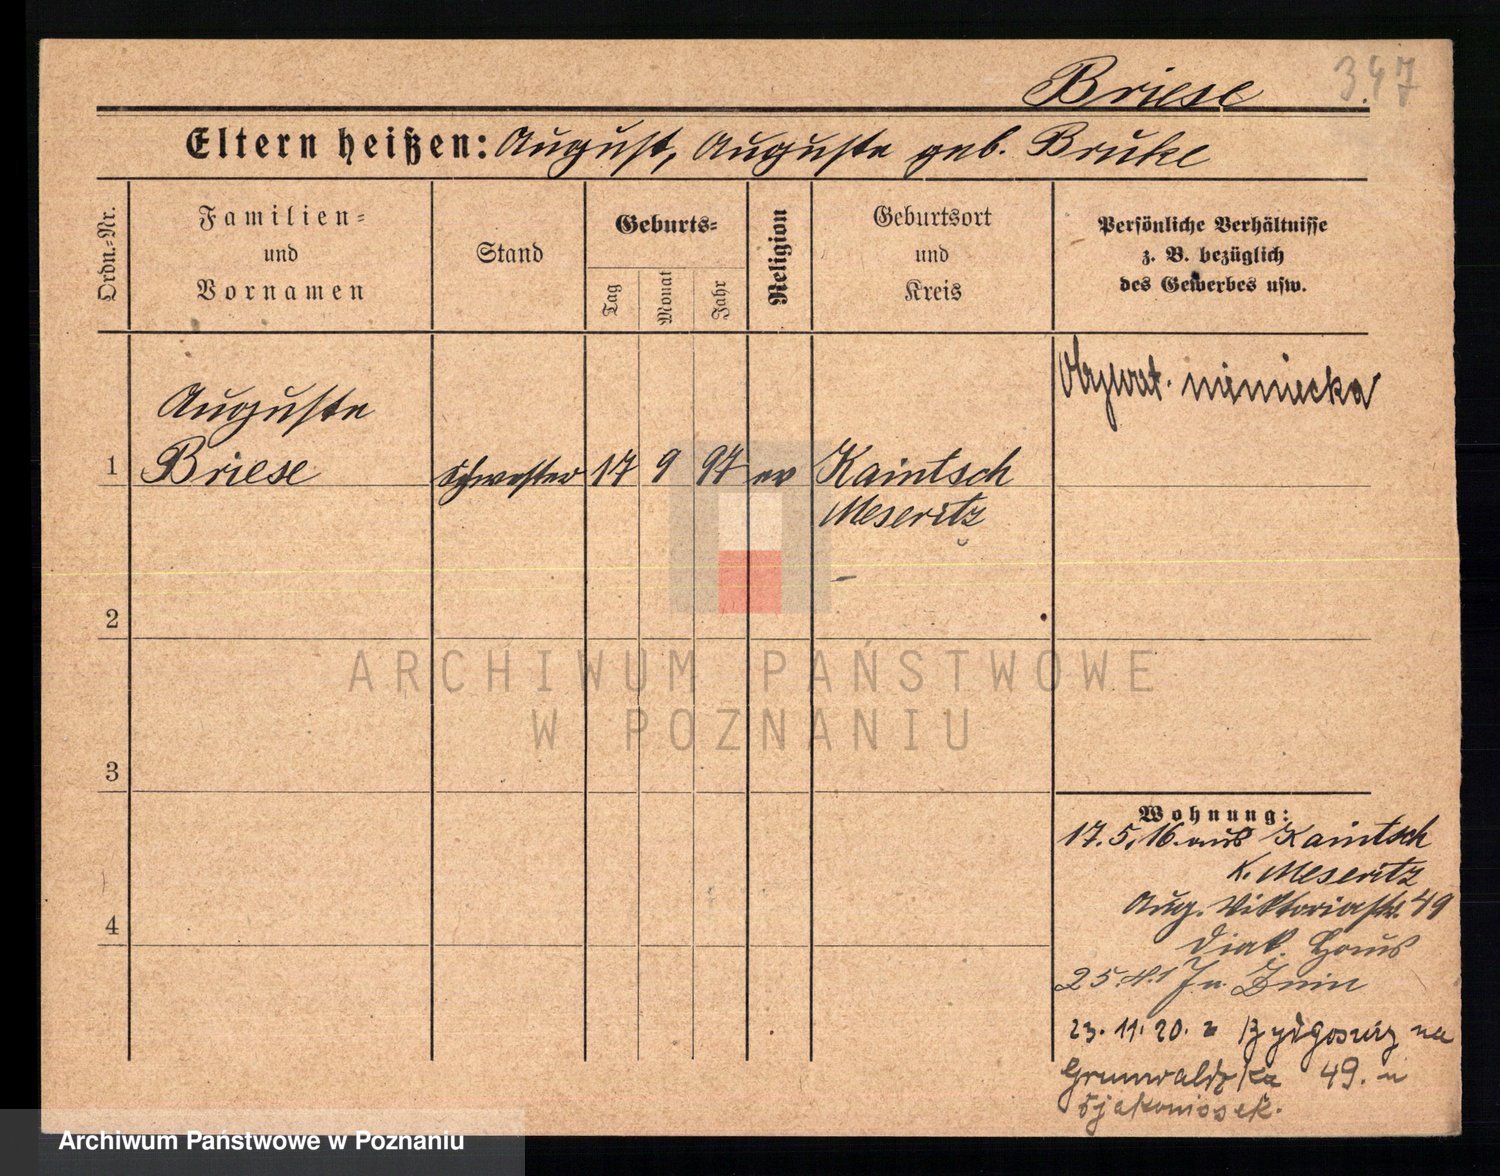 347
Briese
Eltern heißen: August, Auguste geb. Bruke
Ordn.=Nr.
Familien=
und
Vornamen
Stand
Geburts=
Tag
Monat
Jahr
Religion
Geburtsort
und
Kreis
Persönliche Verhältnisse
z. B. bezüglich
des Gewerbes usw.
Obywat. niemiecka
Auguste
1 Briese Schwester 17 9 97 ev Kaintsch
Meseritz
2
3
4
Wohnung:
17.5.16. aus Kaintsch
K. Meseritz
Aug. Viktoriastr. 49
Diak. Haus
25.4.17 n. Znin
23.11.20. z Bydgoszcz na
Grunwaldzka 49. u
Djakonissek.
ARCHIWUM PAŃSTWOWE
W POZNANIU
Archiwum Państwowe w Poznaniu